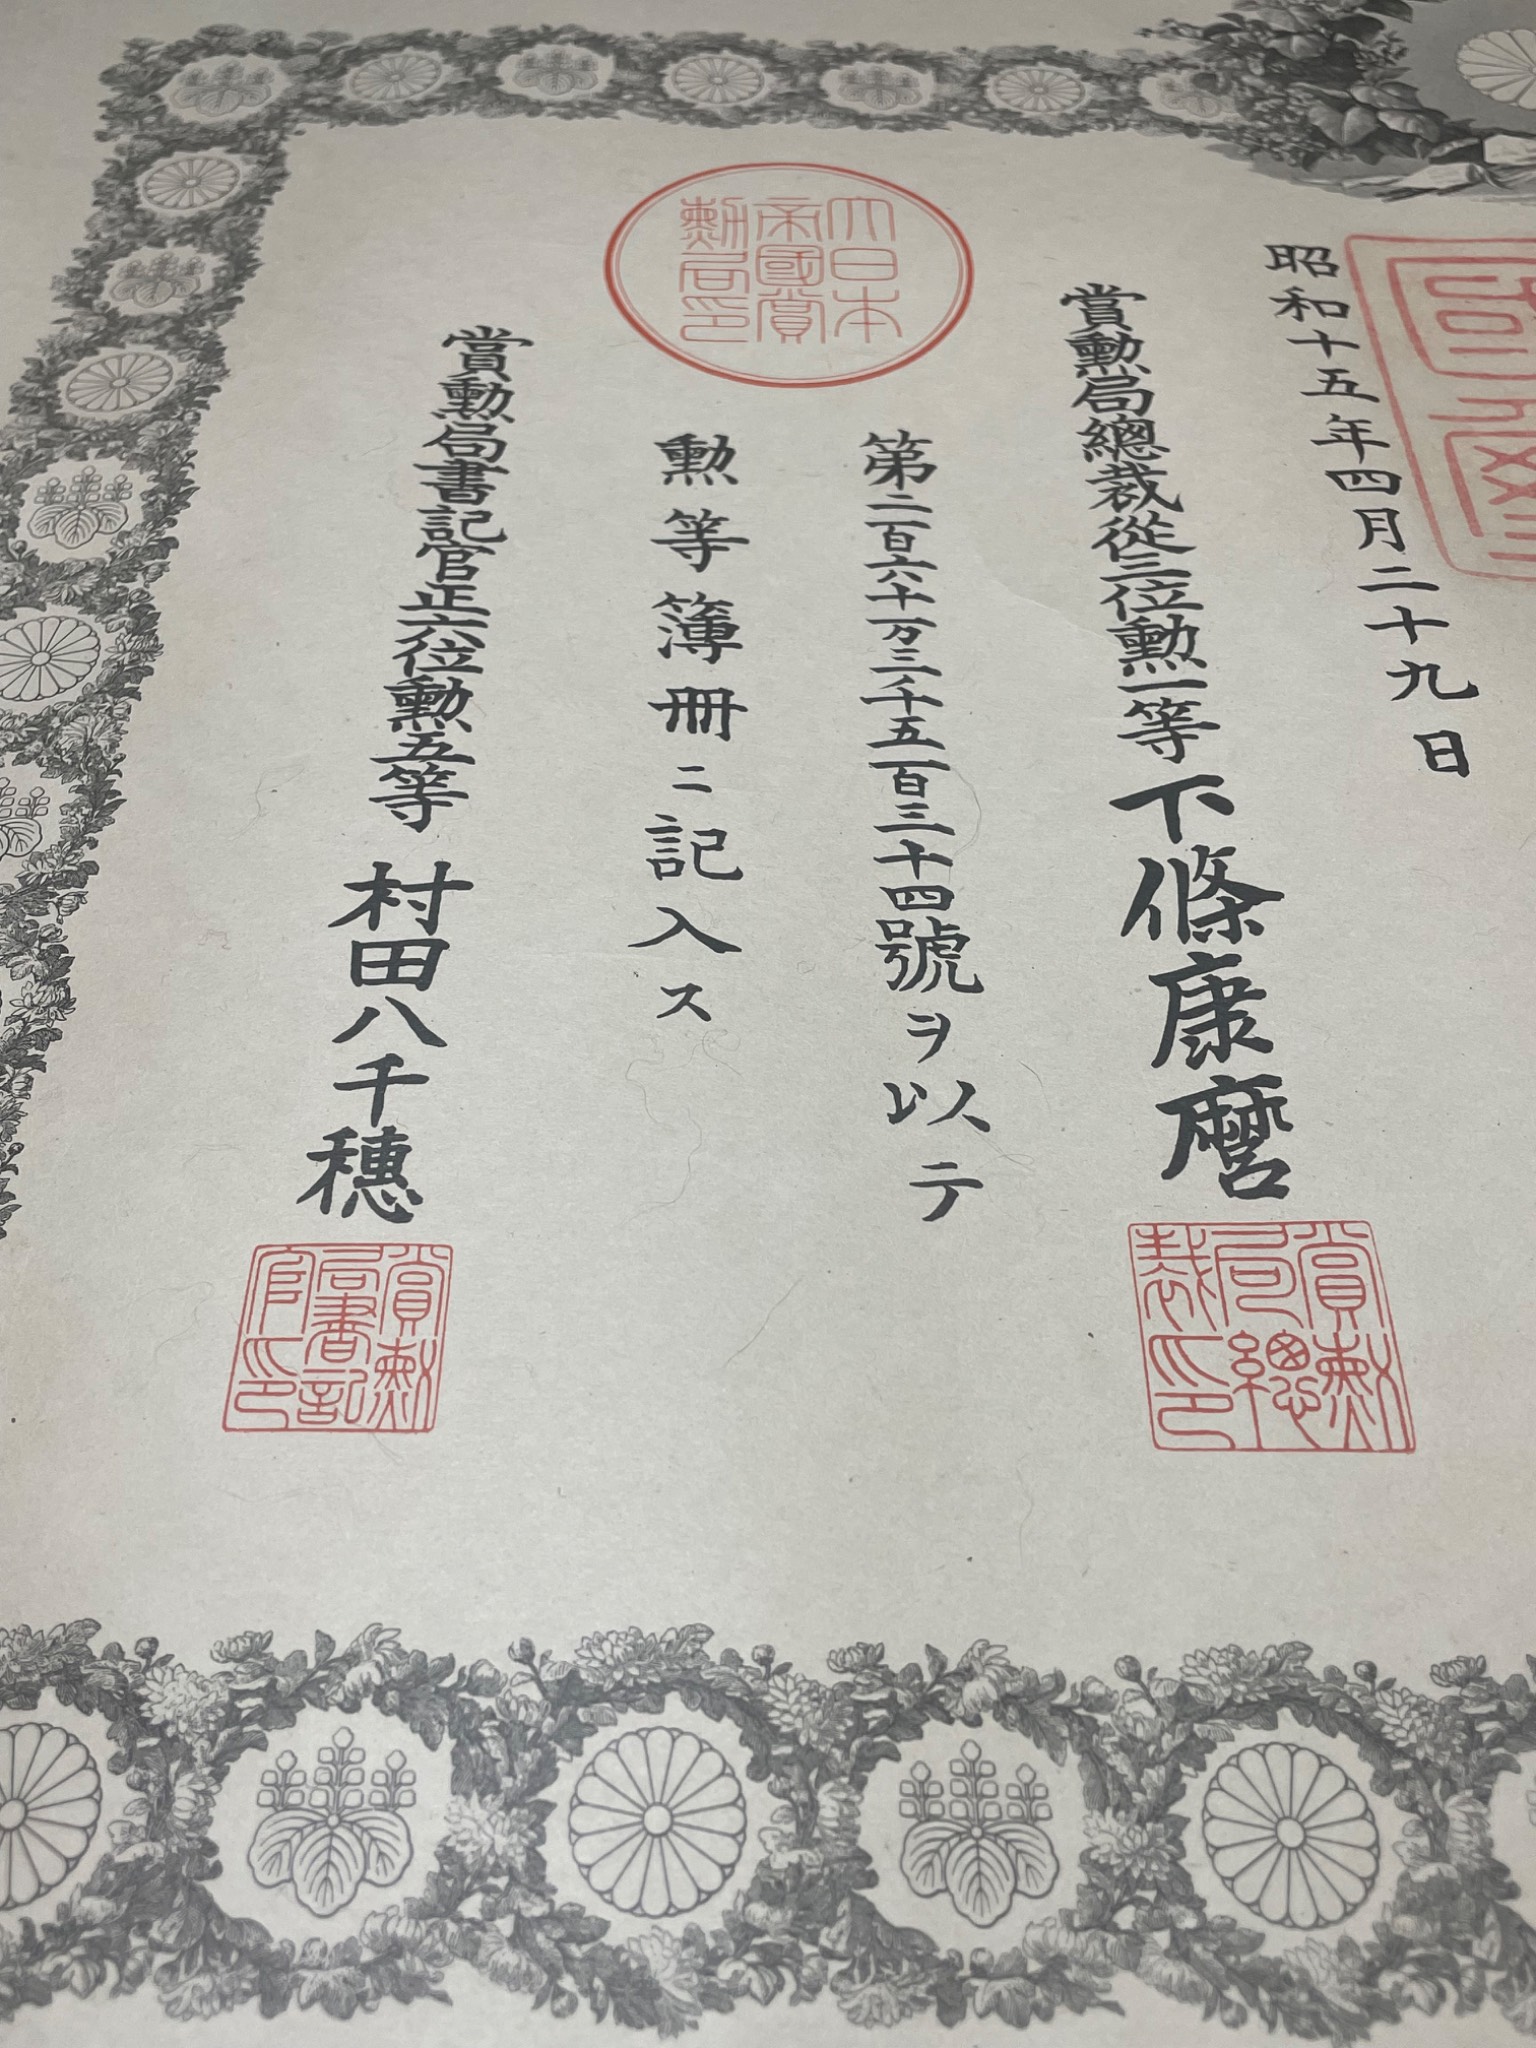 昭和十五年四月二十九日
賞勲局總裁從三位勲一等下條康麿
大日本
帝國賞
勲局印
第二百六十万三千五百三十四號ヲ以テ
勲等簿冊ニ記入ス
賞勲局書記官正六位勲五等村田八千穗
賞勲
局總
裁印
賞勲
局書記
官印